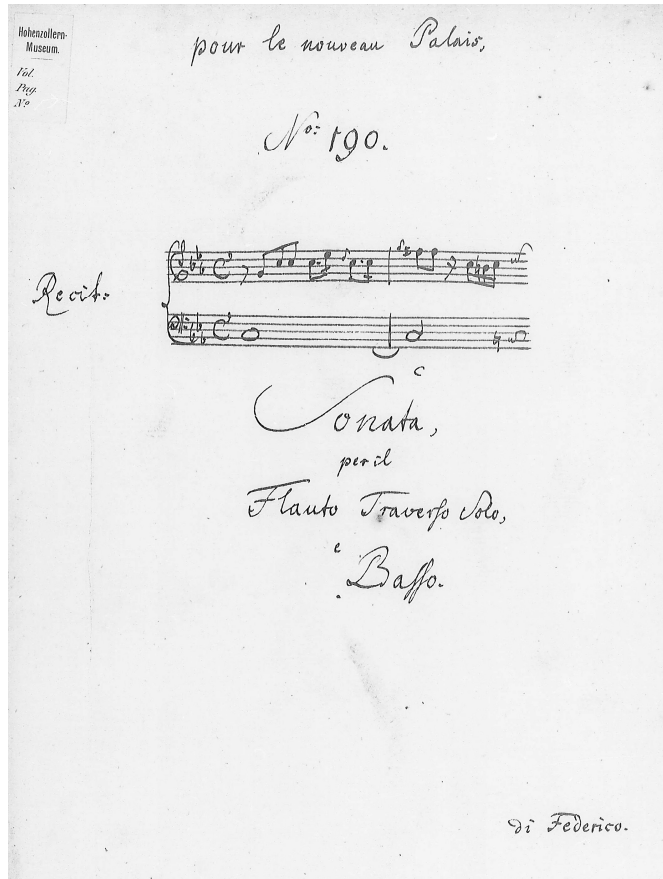 Hohenzollern-
Museum.
Vol.
Pag.
No
pour le nouveau Palais,
No: 190.
Recit:
Sonata,
per il
Flauto Traverſo Solo,
e
Baſſo.
di Federico.